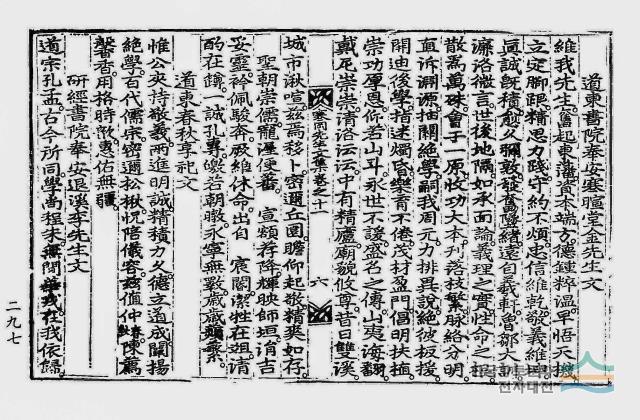 道東書院奉安寒暄堂金先生文
維我先生奮起東藩資本端方德鍾粹溫早悟天機
立定脚跟精思力踐守約不煩忠信維乾敬義維
眞誠旣積愈久彌敦發奮墜緒遠自羲軒曾鄒大
濂洛微言世後地隔如承面諭義理之實性命之
散爲萬殊會于一原收功大本刊落技繁脉絡分明
直泝淵源抽關絶學嗣我周元力排異說絶彼扳援
開迪後學指迷燭昏樂育不倦茂材盈門倡明扶植
崇功厚恩仰若山斗永世不諼盛名之傳山夷海翻
戴尼崇崇淸洛沄沄中有精廬廟貌攸尊昔日雙溪
六
城市湫喧玆焉移卜密邇丘園瞻仰起敬精爽如存
聖朝崇儒寵渥便蕃宣額荐降輝映師垣洎吉
妥靈衿佩駿奔祓維休命出自宸閽潔牲在俎淸
酌在罇一誠孔昇皦若朝暾永寧無斁歲歲蘋蘩
道東春秋享祀文
惟公夾持敬義兩進明誠精積力久德立道成闡揚
絶學百代儒宗密邇松楸怳陪儀容玆値仲陳薦
馨香用格時歆惠佑無疆
硏經書院奉安退溪李先生文
道宗孔孟古今所同學尙程朱無間在我依歸
二九七